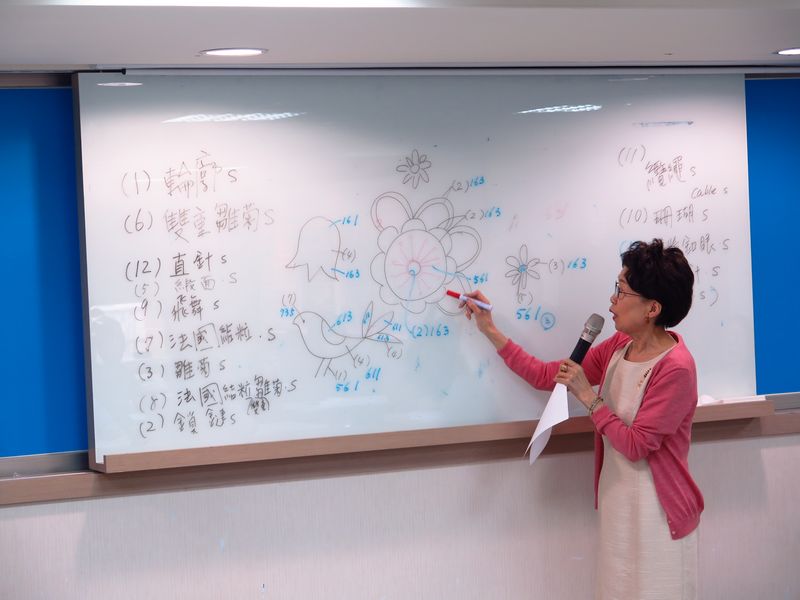 (1) 輪廓 S
(6) 雙重雛菊 S
(12) 直針 S
(5) 緞面 . S
(9) 飛舞 S
(7) 法國結粒 . S
(3) 雛菊 S
(8) 法國結粒雛菊 . S
(2) 鎖鏈 S
161
(4)
163
(2) 163
(2) 163
561
(3) 163
561
(7)
735
613
611
(2) 163
(4)
(4)
(1)
561
611
(11)
纜繩 S
Cable S
(10) 珊瑚 S
釦眼 . S
S
S)